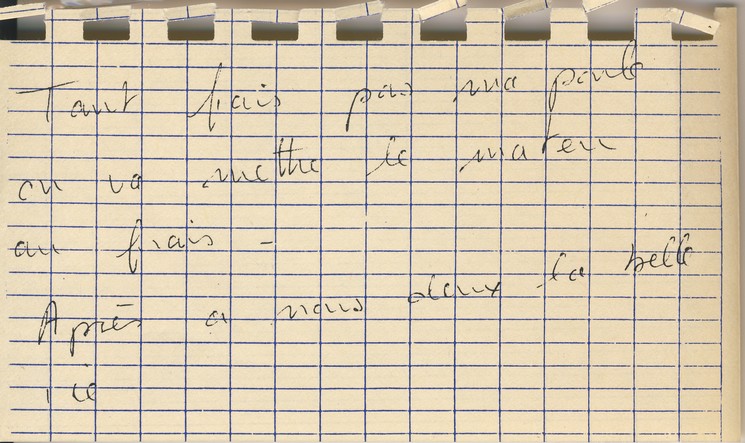 Tant frais pas ma poule
on va mettre le maten
au frais -
Après a nous deux la belle
vie